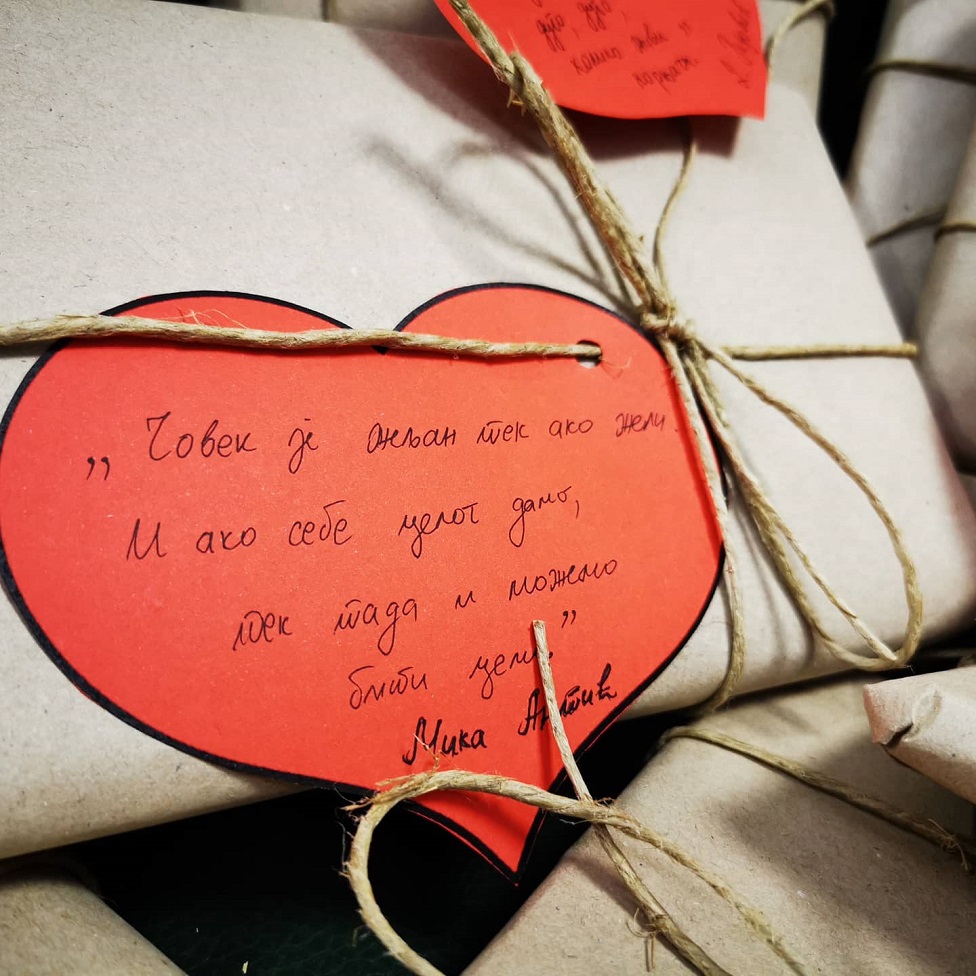 „ Човек је жељан тек ако жели.
И ако себе целог дамо,
тек тада и можемо
бити цели.”
Мика Антић